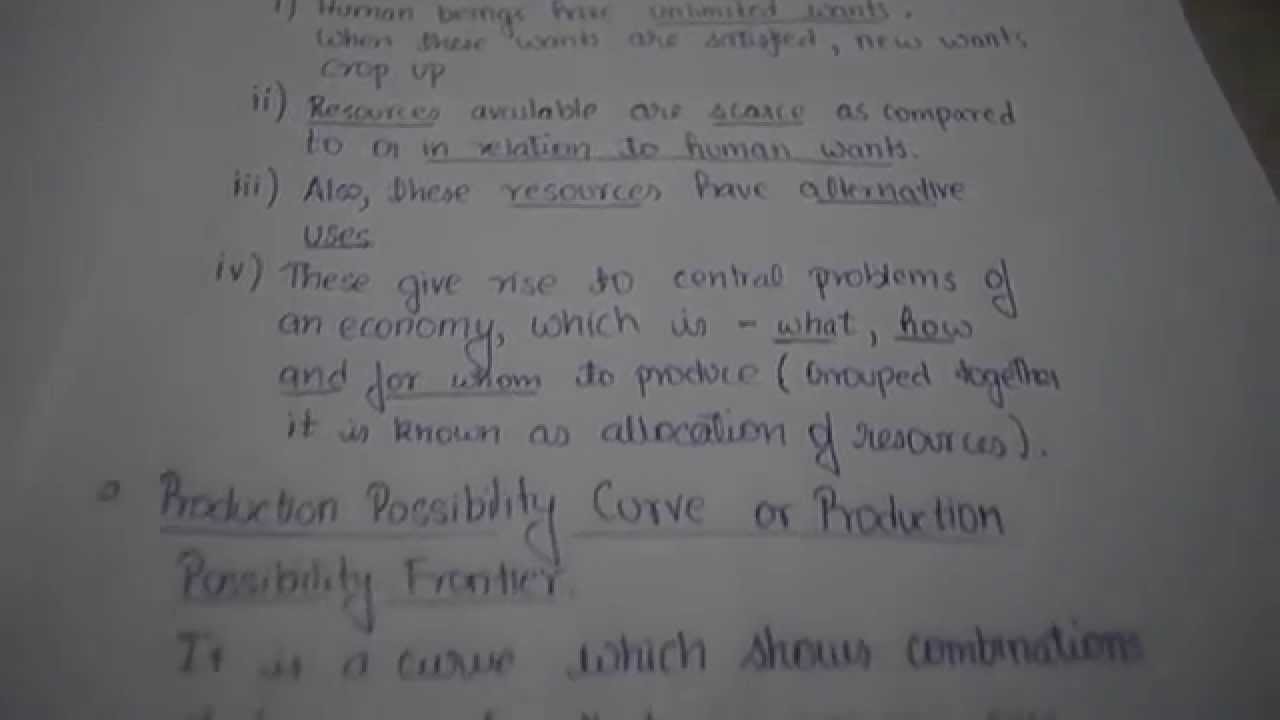 i) Human beings have unlimited wants.
When these wants are satisfied, new wants
crop up
ii) Resources available are scarce as compared
to or in relation to human wants.
iii) Also, these resources have alternative
uses
iv) These give rise to central problems of
an economy, which is - what, how
and for whom to produce (Grouped together
it is known as allocation of resources).
Production Possibility Curve or Production
Possibility Frontier.
It is a curve which shows combinations